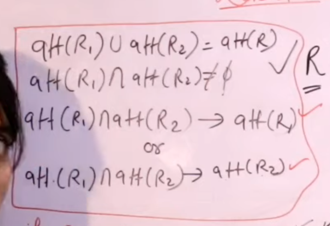 att(R₁) ∪ att(R₂) = att(R) ✓ R
att(R₁) ∩ att(R₂) ≠ ϕ
att(R₁) ∩ att(R₂) → att(R₁) ✓
or
att.(R₁) ∩ att(R₂) → att(R₂) ✓